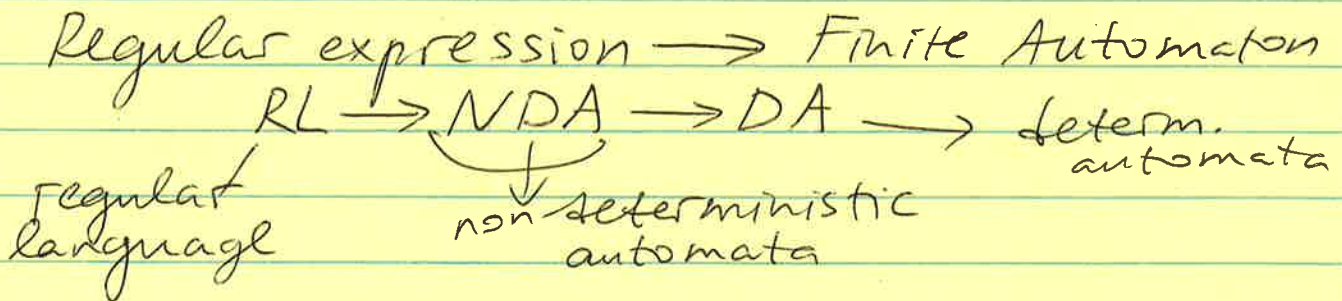 Regular expression → Finite Automaton
RL → NDA → DA → determ.
automata
regular
language
non-deterministic
automata